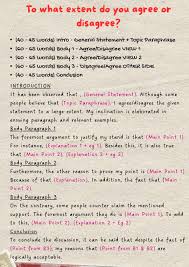 To what extent do you agree or
disagree?
• (40 - 45 Words) Intro - General Statement + Topic Paraphrase
• (60 - 65 Words) Body 1 - Agree/Disagree VIEW 1
• (60 - 65 Words) Body 2 - Agree/Disagree VIEW 2
• (60 - 65 Words) Body 3 - Disagree/Agree OTHER SIDE
• (40 - 45 Words) Conclusion
INTRODUCTION
It has been observed that , (General Statement). Although some
people believe that (Topic Paraphrase). I agree/disagree the given
statement to a large extent. My inclination is elaborated in
ensuing paragraph and relevant examples.
Body Paragraph 1
The foremost argument to justify my stand is that (Main Point 1).
For instance, (Explanation 1 + eg 1). Besides this, it is also true
that (Main Point 2). (Explanation 2 + eg 2)
Body Paragraph 2
Furthermore, the other reason to prove my point is (Main Point 1).
Because of that (Explanation). In addition, the fact that (Main
Point 2).
Body Paragraph 3
On the contrary, some people counter claim the mentioned
support. The foremost argument they do is (Main Point 1). To add
to this, (Main Point 2). (Explanation 2 + Eg 2).
Conclusion
To conclude the discussion, it can be said that despite the fact of
(Point from B3), my reasons that (Point from B1 & B2) are
logically acceptable.